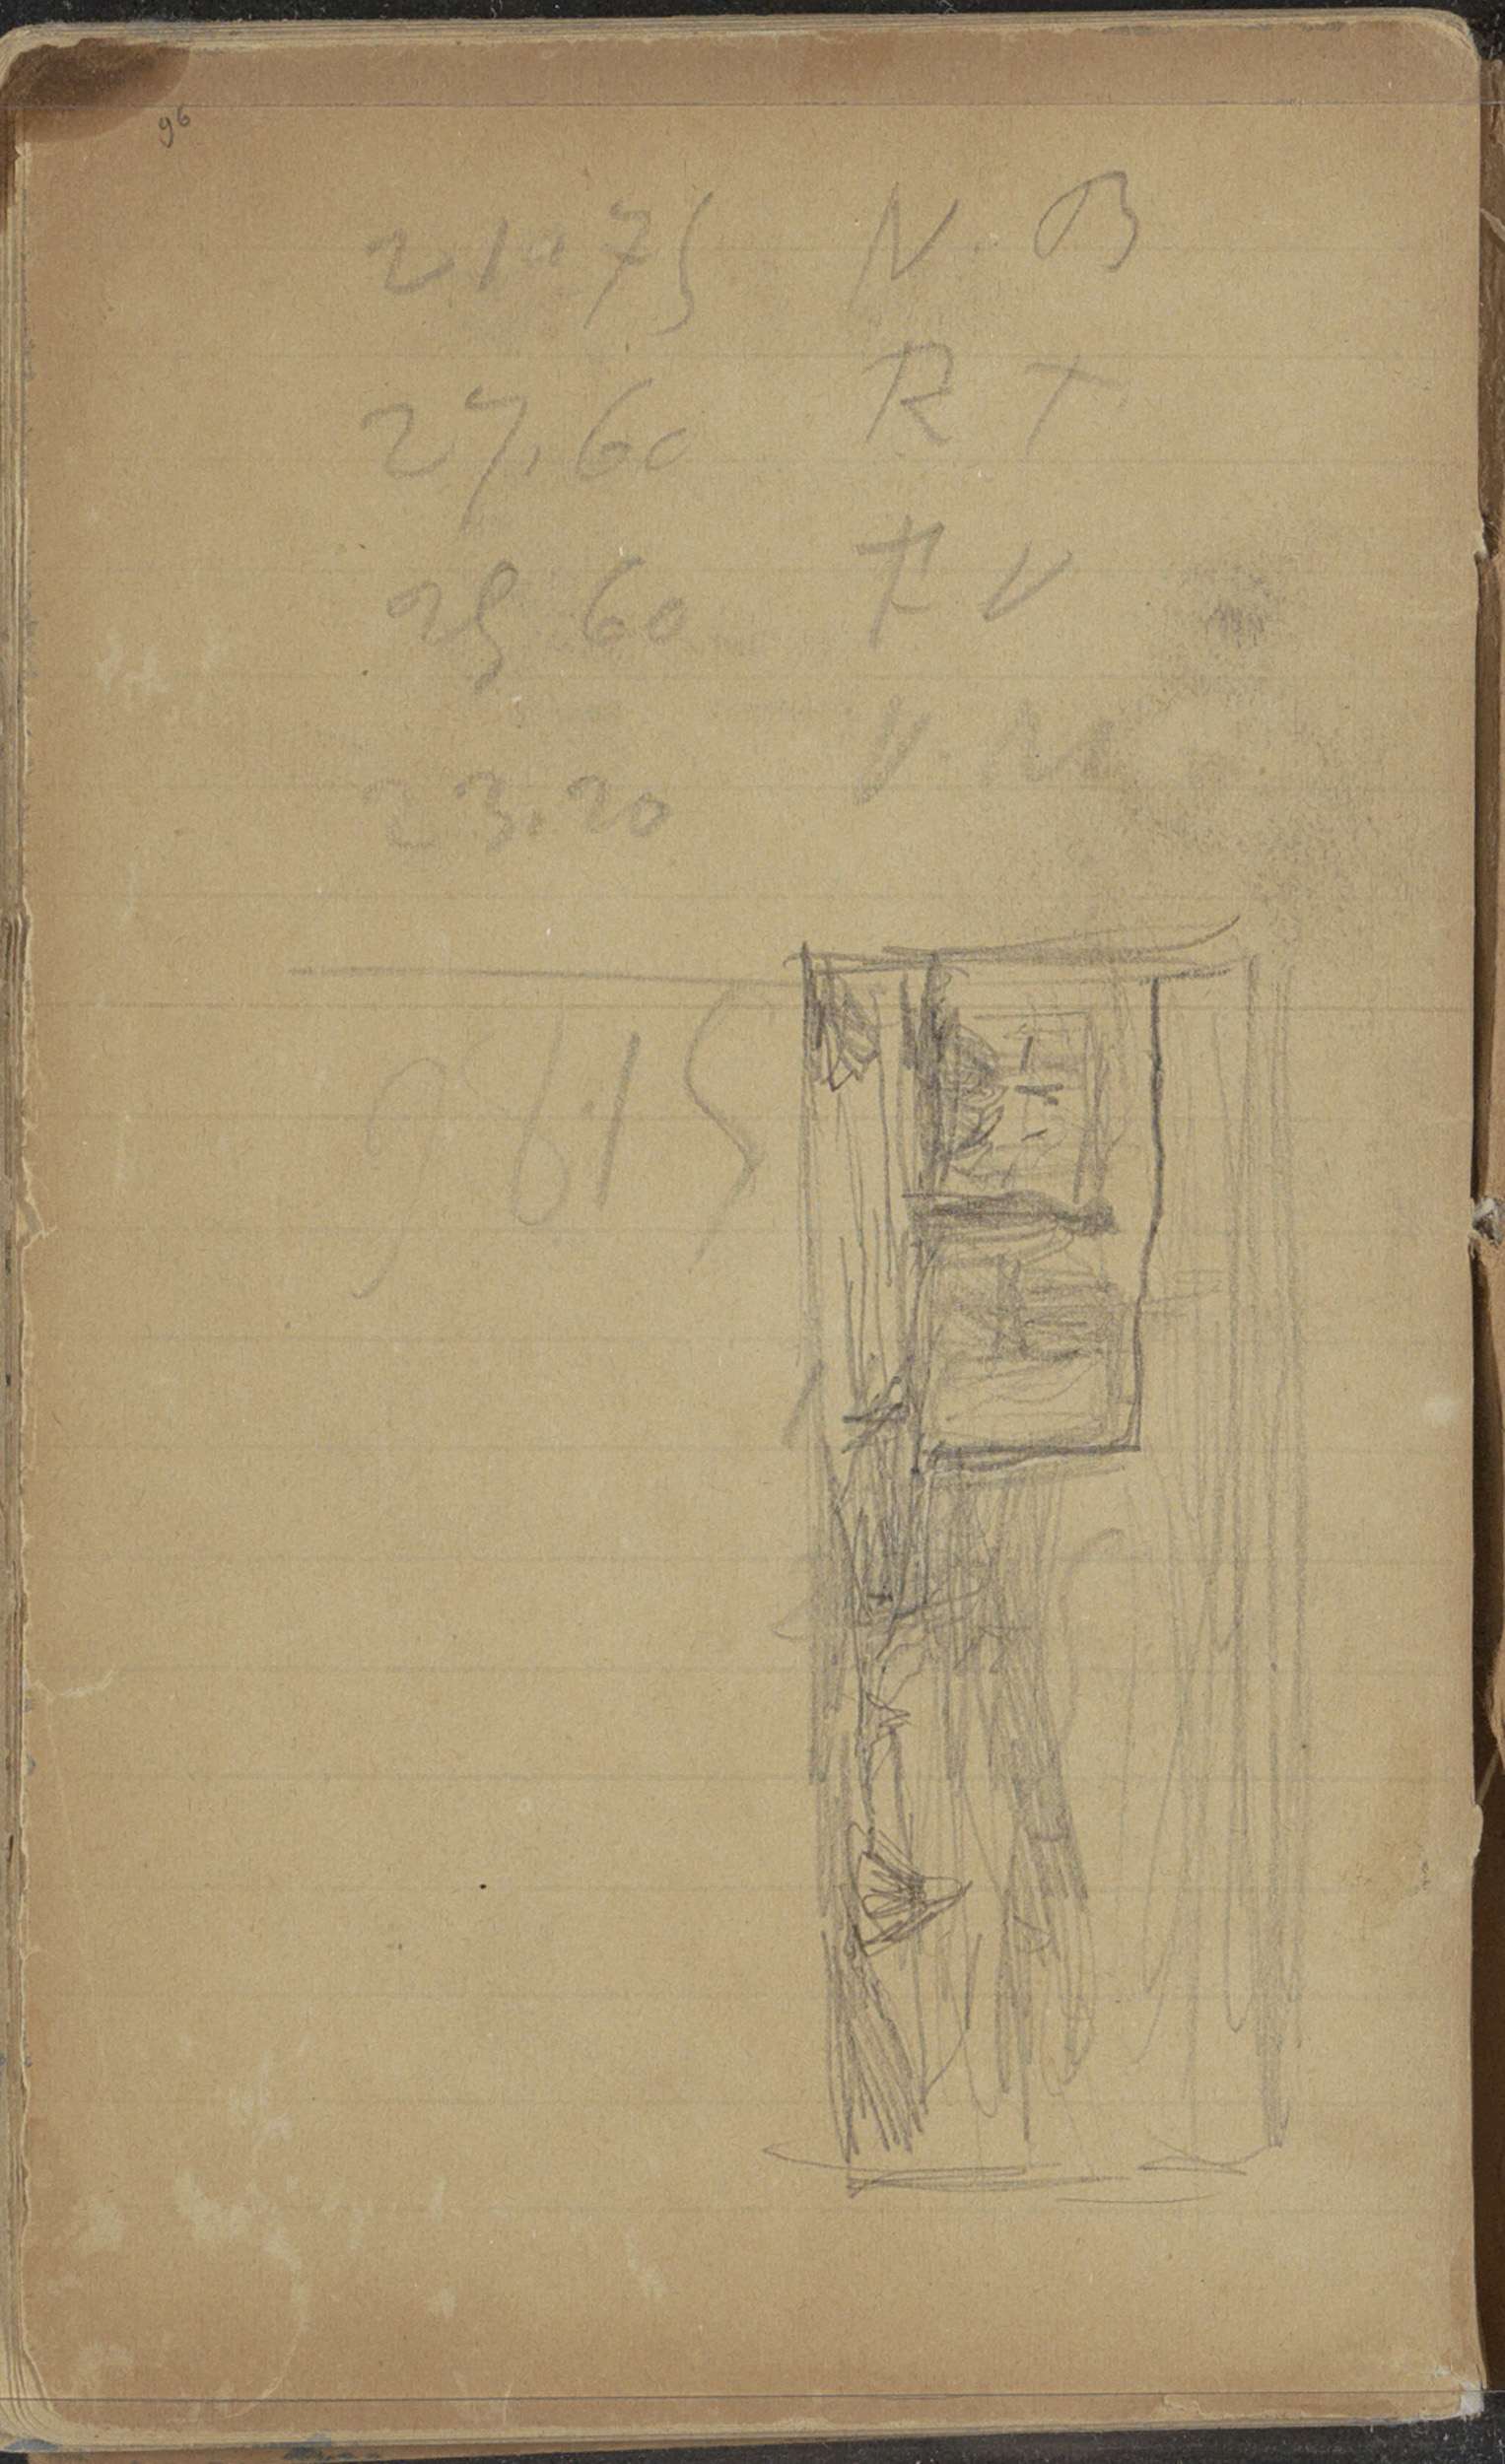 96
21.75 N. B
27.60 R T
25 60 R V
23.20 V. M
98.15